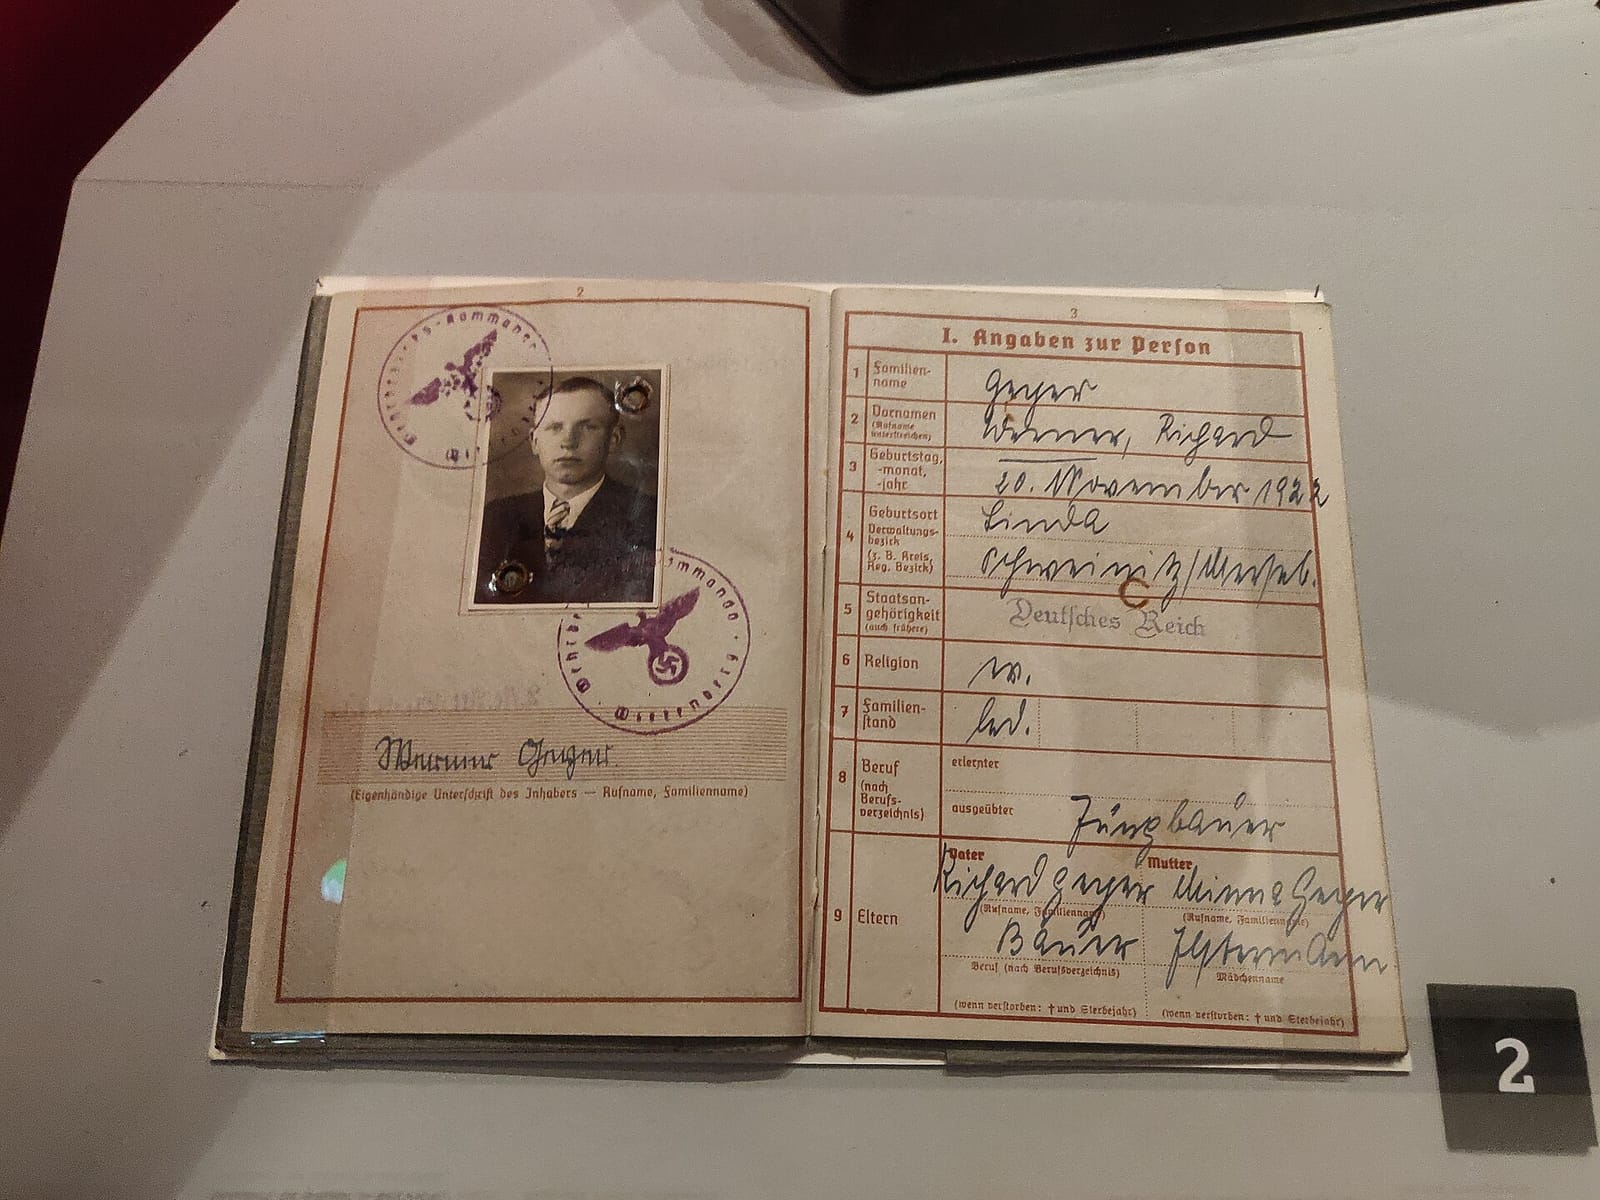 2
Wehrbezirks-Kommando
Wittenberg
Wehrbezirks-Kommando
Wittenberg
Werner Geyer
(Eigenhändige Unterschrift des Inhabers — Rufname, Familienname)
3
I. Angaben zur Person
1 Familien-
name
Geyer
2 Vornamen
(Rufname
unterstreichen)
Werner, Richard
3 Geburtstag,
-monat,
-jahr
20. November 1922
4 Geburtsort
Verwaltungs-
bezirk
(z. B. Kreis,
Reg. Bezirk)
Linda
Schweinitz/Merseb.
5 Staatsan-
gehörigkeit
(auch frühere)
Deutsches Reich
6 Religion
7 Familien-
stand
led.
8 Beruf
(nach
Berufs-
verzeichnis)
erlernter
ausgeübter
Jungbauer
9 Eltern
Vater Mutter
Richard Geyer Minna Geyer
(Rufname, Familienname) (Rufname, Familienname)
Bauer
Beruf (nach Berufsverzeichnis) Mädchenname
(wenn verstorben: † und Sterbejahr) (wenn verstorben: † und Sterbejahr)
2